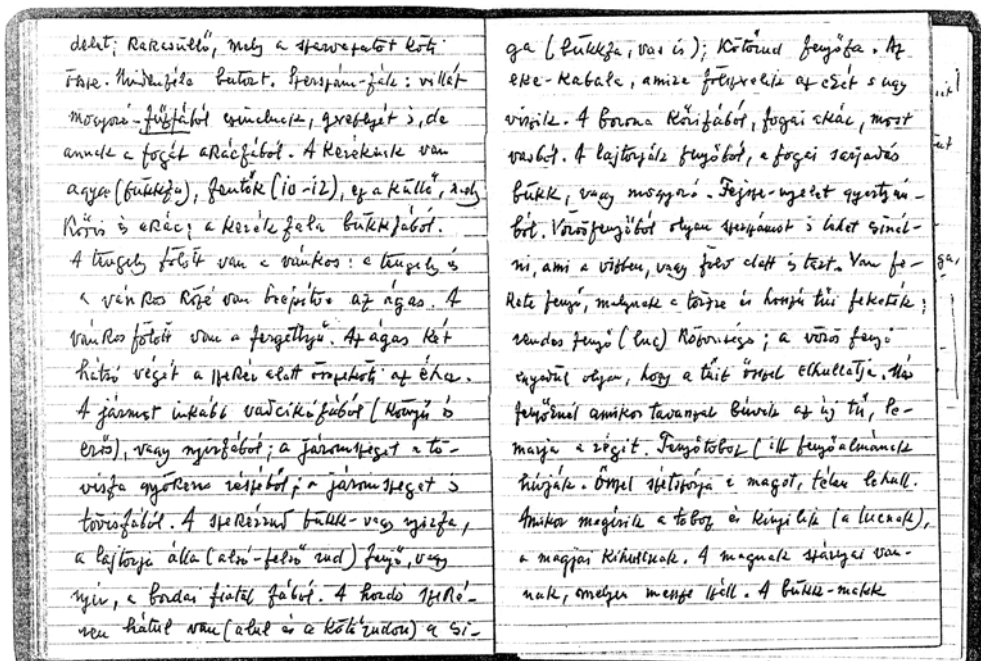 delet; Kakasüllő, mely a szarvazatot köti
össze. Mindenféle butort. Szerszám-fák: villát
mogyoró-fűzfából csinálnak, gereblyét is, de
annak a fogát akácfából. A keréknek van
agya (bükkfa), fentők (10-12), és a küllő, mely
kőris és akác; a kerék fala bükkfából.
A tengely fölött van a vánkos: a tengely és
a vánkos közé van beépítve az ágas. A
vánkos fölött van a fergettyű. Az ágas két
hátsó végét a szekér alatt összeköti az éha.
A jármot inkább vadcikófából (könnyű és
erős), vagy nyírfából; a járomszeget a tö-
visfa gyökeres részéből; a járomszeget is
tövisfából. A szekérrud bükk- vagy nyírfa,
a lajtorja álla (alsó-felső rud) fenyő, vagy
nyír, a bordái fiatal fából. A hordó szeké-
ren hátul van (alul és a kötőrudon) a si-
ga (bükkfa, vas is); kötőrud fenyőfa. Az
eke-kabala, amire fölteszik az ekét s ugy
viszik. A borona kőrifából, fogai akác, most
vasból. A lajtorják fenyőből, a fogai sarjadás
bükk, vagy mogyoró. Fejsze-nyelet gyertyán-
ból. Vörösfenyőből olyan szerszámot is lehet csinál-
ni, ami a vizben, vagy föld alatt is tart. Van fe-
kete fenyő, melynek a törzse és hosszú tűi feketék;
rendes fenyő (luc) Kőrösmező; a vörös fenyő
egyedül olyan, hogy a tűit ősszel elhullatja. Más
fenyőknél amikor tavasszal búvik az új tű, le-
marja a régit. Fenyőtoboz (itt fenyőalmának
hívják. Ősszel szétszórja a magot, télen lehull.
Amikor megérik a toboz és kinyilik (a lucnak),
a magjai kihullnak. A magnak szárnyai van-
nak, amelyen messze száll. A bükk-makk